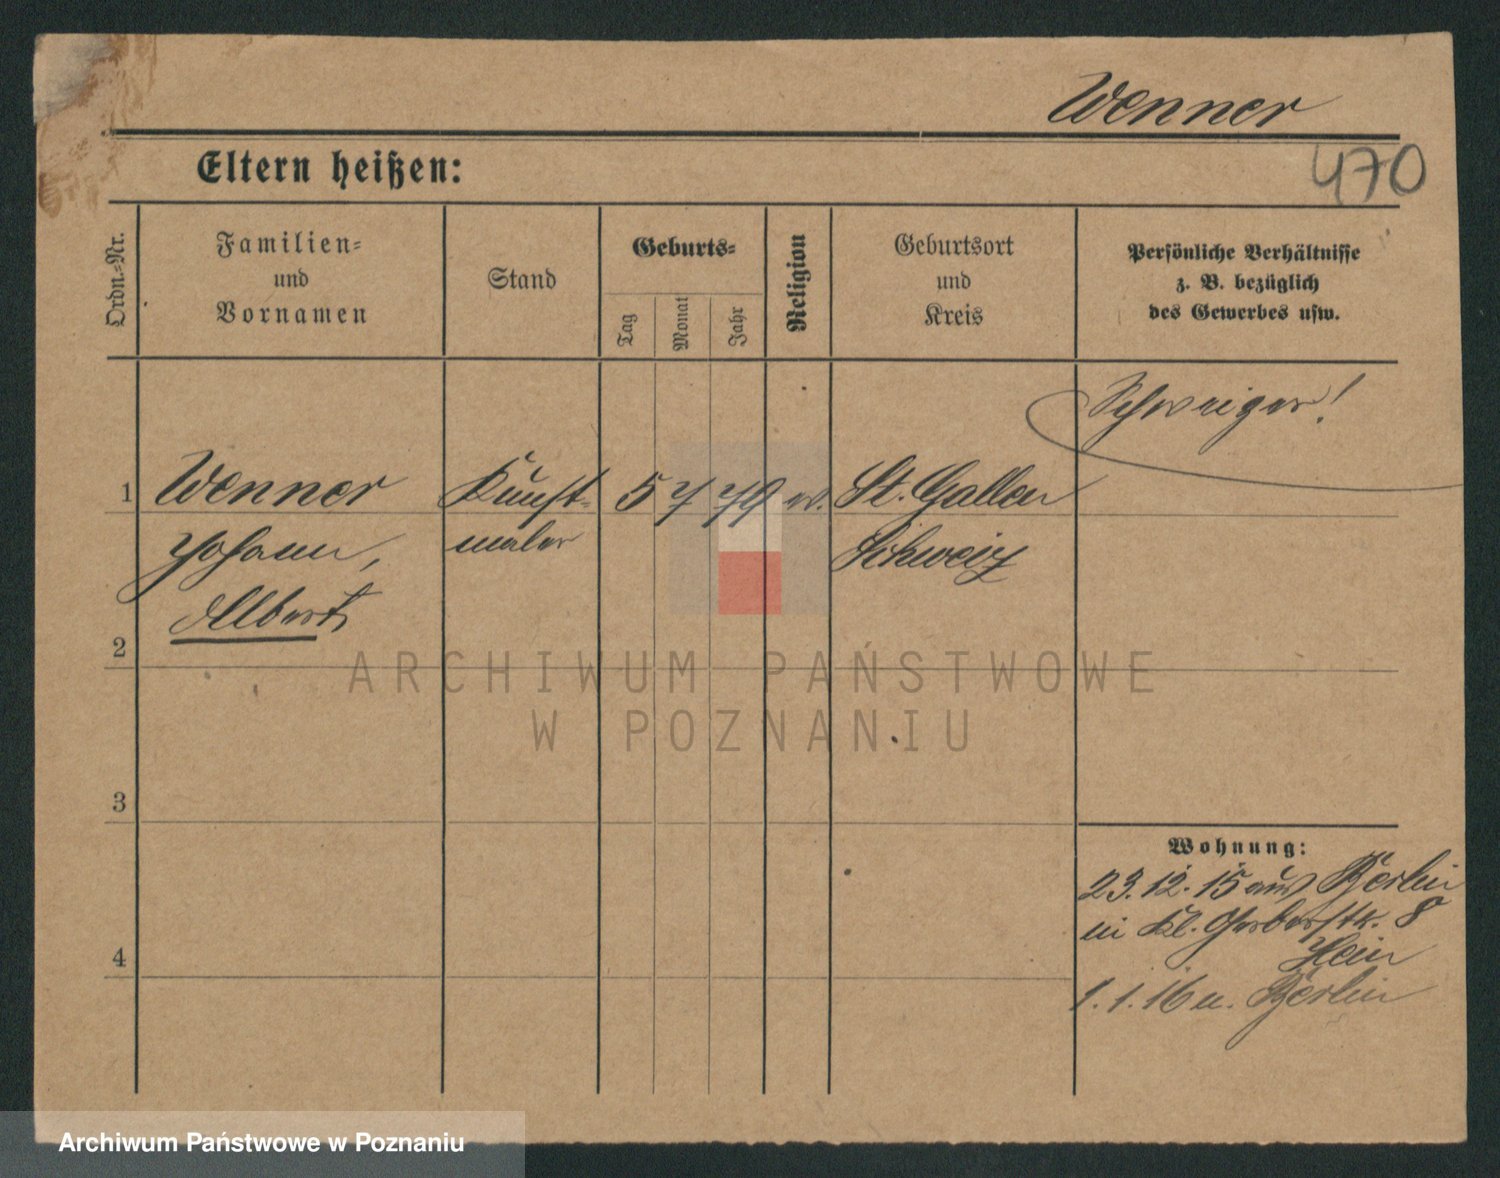 Wenner
470
Eltern heißen:
Ordn.-Nr.
Familien-
und
Vornamen
Stand
Geburts-
Tag
Monat
Jahr
Religion
Geburtsort
und
Kreis
Persönliche Verhältnisse
z. B. bezüglich
des Gewerbes usw.
Schweizer!
1 Wenner Kunst- 5 7 79 ev. St. Gallen
Johann, maler Schweiz
Albert
2
3
4
Wohnung:
23.12.15 aus Berlin
in Kl. Gerberstr. 8
Hein
1.1.16 n. Berlin
ARCHIWUM PAŃSTWOWE
W POZNANIU
Archiwum Państwowe w Poznaniu